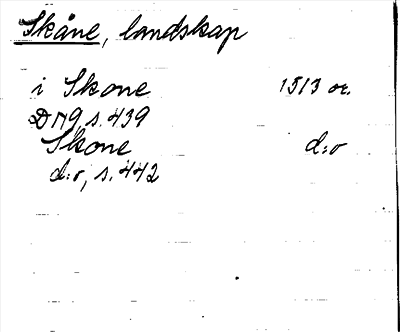 Skåne, landskap
i Skone 1513 or.
DN9 s. 439
Skone d:o
d:o, s. 442